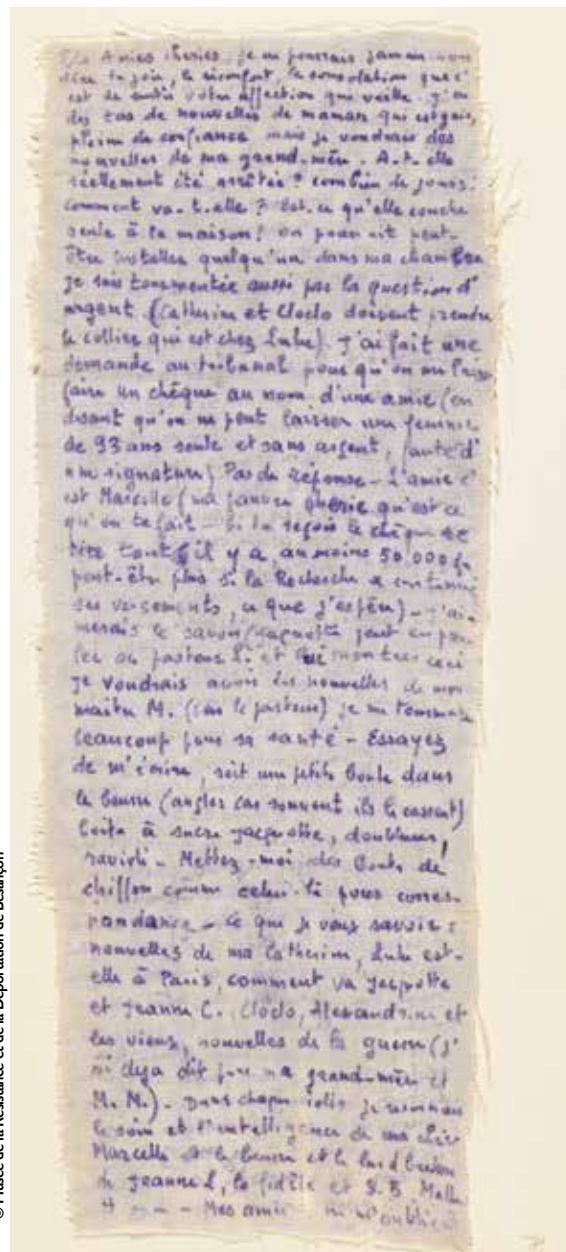 Amies chéries, je ne pourrais jamais vous
dire la joie, le réconfort, la consolation que c'
est de sentir votre affection qui veille. J'ai eu
des tas de nouvelles de maman qui est gaie,
pleine de confiance mais je voudrais des
nouvelles de ma grand-mère. A-t-elle
réellement été arrêtée? combien de jours?
comment va-t-elle? Est-ce qu'elle couche
seule à la maison? On pourrait peut-
être installer quelqu'un dans ma chambre
je suis tourmentée aussi par la question d'
argent (Catherine et Cloclo doivent prendre
le collier qui est chez Lulu). J'ai fait une
demande au tribunal pour qu'on me laisse
faire un chèque au nom d'une amie (en
disant qu'on ne peut laisser une femme
de 93 ans seule et sans argent, faute d'
une signature) Pas de réponse - L'amie c'
est Marcelle (ma pauvre chérie qu'est ce
qu'on te fait - Si tu reçois le chèque
tire tout, il y a au moins 50.000 fr
peut-être plus si la Recherche a continué
ses versements, ce que j'espère) - J'ai-
merais le savoir (Jacquotte peut en par-
ler au pasteur et lui montrer ceci
je voudrais avoir des nouvelles de mon
maître M. (par le pasteur) je me tourmente
beaucoup pour sa santé - Essayez
de m'écrire, soit une petite boule dans
le beurre (angles car souvent ils le cassent)
boîte à sucre Jacquotte, doublures,
ravioli - Mettez-moi des bouts de
chiffon comme celui-là pour corres-
pondance - Ce que je veux savoir :
nouvelles de ma Catherine, Lulu est-
elle à Paris, comment va Jacquotte
et Jeanne C. Cloclo, Alexandrine et
les siens, nouvelles de la guerre (j'
ai déjà dit pour ma grand-mère et
M. M.) - Dans chaque colis je reconnais
le soin et l'intelligence de ma chère
Marcelle et le beurre et le lard breton
de Jeanne L, la fidèle et S.B
Mes amies
© Musée de la Résistance et de la Déportation de Besançon